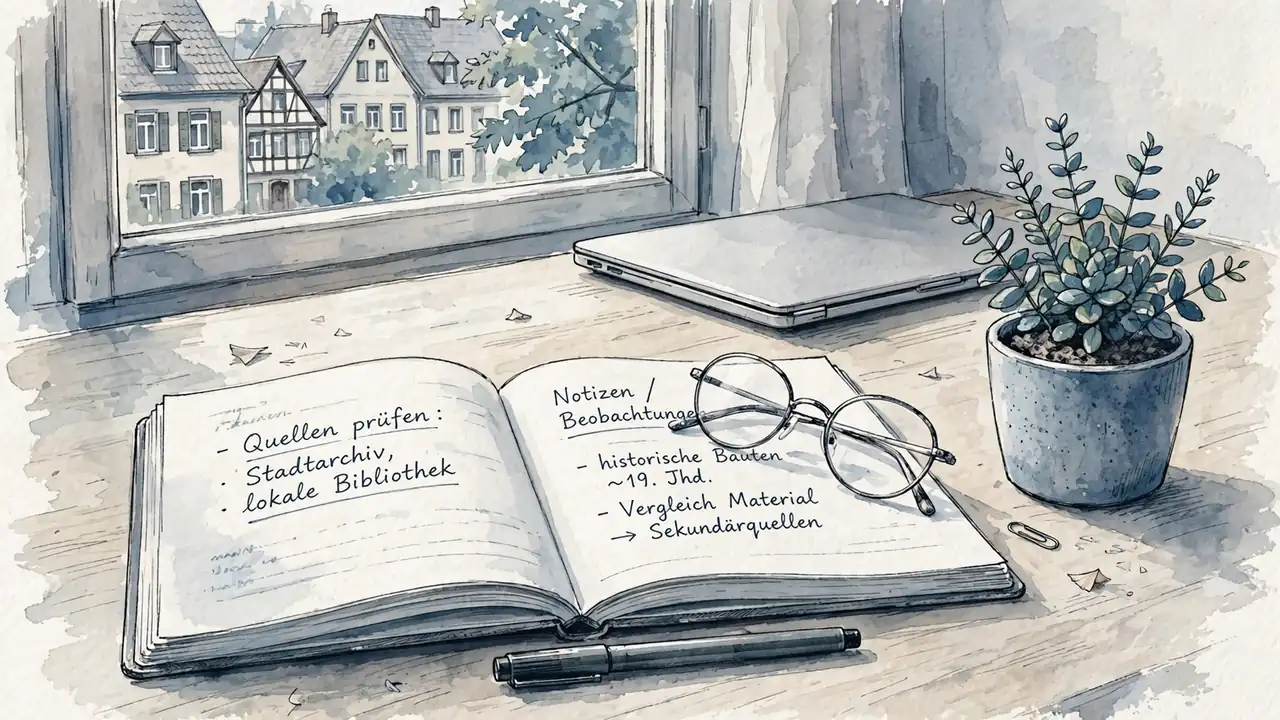 - Quellen prüfen:
· Stadtarchiv,
· lokale Bibliothek
Notizen /
Beobachtunge
- historische Bauten
~19. Jhd.
- Vergleich Material
→ Sekundärquellen